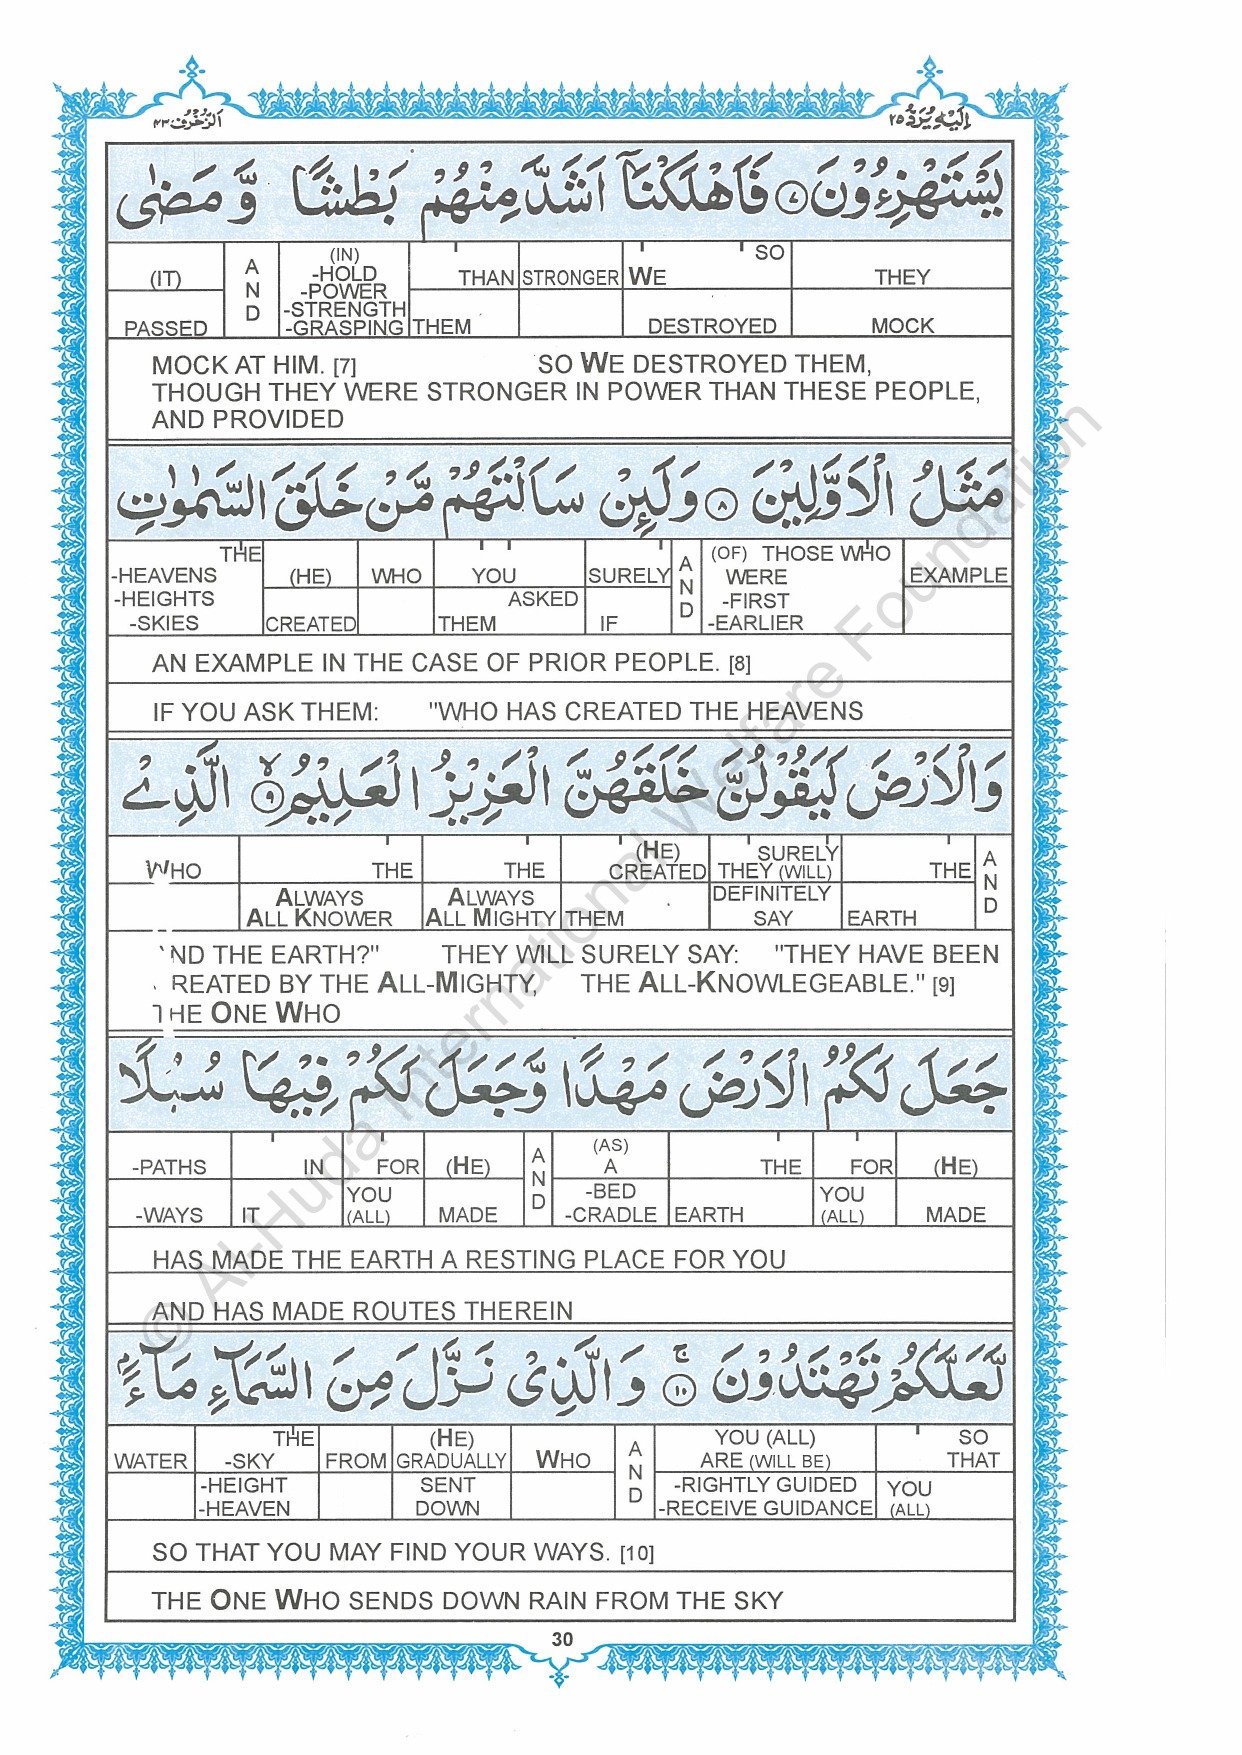 اَلزُّخْرُف ٤٣
اِلَيْهِ يُرَدُّ ٢٥
يَسْتَهْزِءُوْنَ ۷ فَاَهْلَكْنَآ اَشَدَّ مِنْهُمْ بَطْشًا وَّ مَضٰى
(IT) PASSED AND (IN) -HOLD -POWER -STRENGTH -GRASPING THAN THEM STRONGER WE SO DESTROYED THEY MOCK
MOCK AT HIM. [7] SO WE DESTROYED THEM,
THOUGH THEY WERE STRONGER IN POWER THAN THESE PEOPLE,
AND PROVIDED
مَثَلُ الْاَوَّلِيْنَ ۸ وَلَىِٕنْ سَاَلْتَهُمْ مَّنْ خَلَقَ السَّمٰوٰتِ
THE -HEAVENS -HEIGHTS -SKIES (HE) CREATED WHO YOU ASKED THEM SURELY IF AND (OF) THOSE WHO WERE -FIRST -EARLIER EXAMPLE
AN EXAMPLE IN THE CASE OF PRIOR PEOPLE. [8]
IF YOU ASK THEM: "WHO HAS CREATED THE HEAVENS
وَالْاَرْضَ لَيَقُوْلُنَّ خَلَقَهُنَّ الْعَزِيْزُ الْعَلِيْمُ ۙ ۹ الَّذِيْ
WHO THE ALWAYS ALL KNOWER THE ALWAYS ALL MIGHTY (HE) CREATED THEM SURELY THEY (WILL) DEFINITELY SAY THE EARTH AND
ND THE EARTH?" THEY WILL SURELY SAY: "THEY HAVE BEEN
REATED BY THE ALL-MIGHTY, THE ALL-KNOWLEGEABLE." [9]
THE ONE WHO
جَعَلَ لَكُمُ الْاَرْضَ مَهْدًا وَّجَعَلَ لَكُمْ فِيْهَا سُبُلًا
-PATHS -WAYS IN IT FOR YOU (ALL) (HE) MADE AND (AS) A -BED -CRADLE THE EARTH FOR YOU (ALL) (HE) MADE
HAS MADE THE EARTH A RESTING PLACE FOR YOU
AND HAS MADE ROUTES THEREIN
لَّعَلَّكُمْ تَهْتَدُوْنَ ۚ ۱۰ وَالَّذِيْ نَزَّلَ مِنَ السَّمَآءِ مَآءًۢ
WATER THE -SKY -HEIGHT -HEAVEN FROM (HE) GRADUALLY SENT DOWN WHO AND YOU (ALL) ARE (WILL BE) -RIGHTLY GUIDED -RECEIVE GUIDANCE SO THAT YOU (ALL)
SO THAT YOU MAY FIND YOUR WAYS. [10]
THE ONE WHO SENDS DOWN RAIN FROM THE SKY
30
© Al-Huda International Welfare Foundation